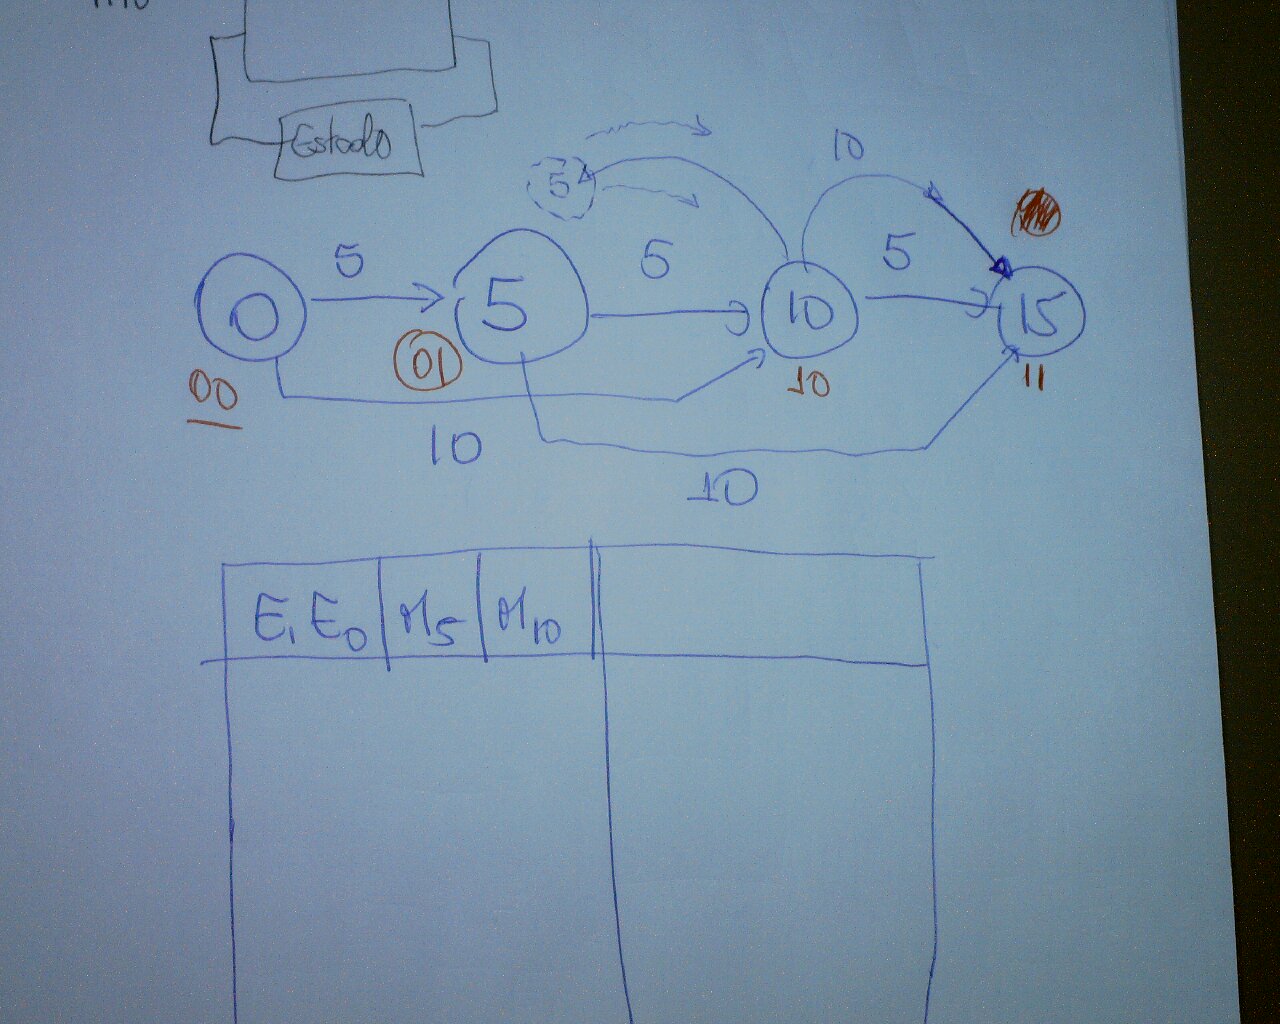 Estado
10
5
5
5
5
0
5
10
15
01
00
10
11
10
10
E₁ E₀ M₅ M₁₀